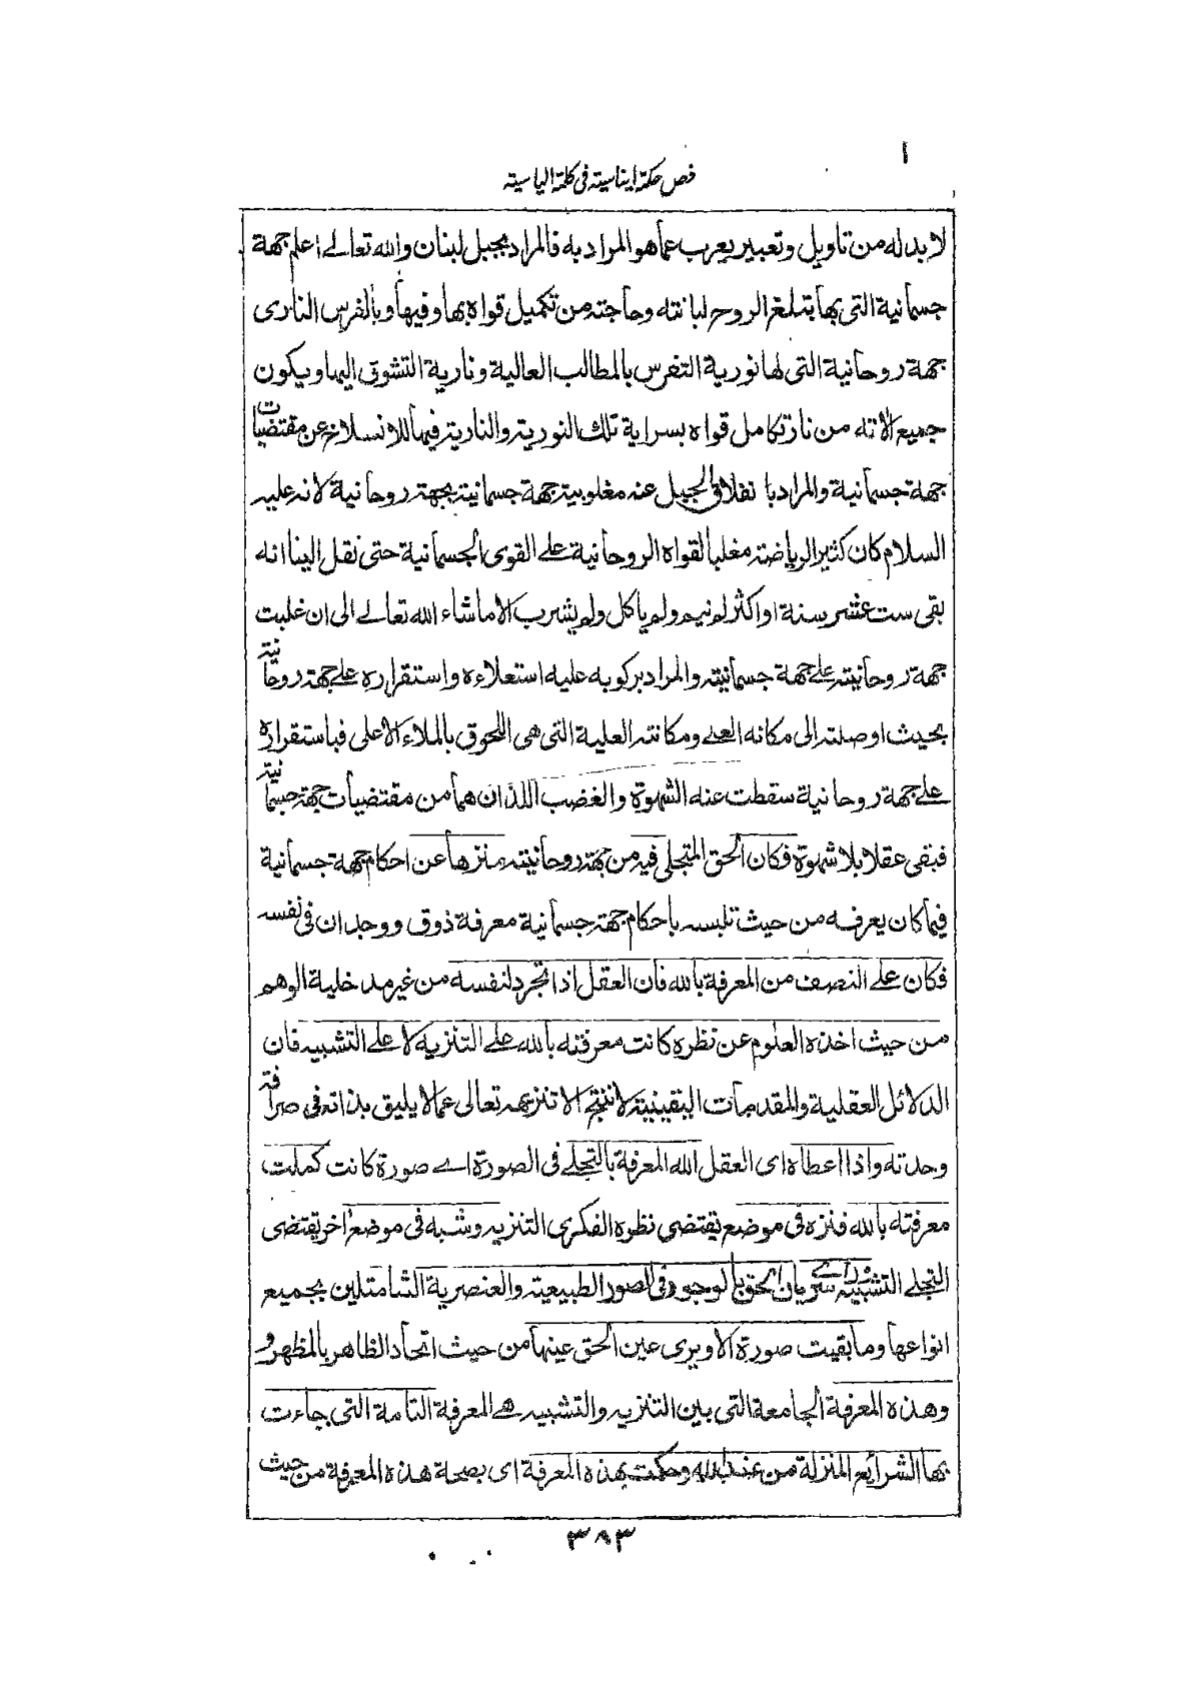 ا
فص حكمة ايناسية فى كلمة الياسية
لا بد له من تاويل وتعبير يعرب عما هو المراد به فالمراد بجبل لبنان والله تعالے اعلم جهة
جسمانية التى بها يتبلغ الروح لبانته وحاجته من تكميل قواه بها وفيها وبالفرس النارى
جهة روحانية التى لها نورية التفرس بالمطالب العالية ونارية التشوق اليها ويكون
جميع الاته من نار تكامل قواه بسراية تلك النورية والنارية فيها للانسلاخ عن مقتضيات
جهة جسمانية والمراد بانفلاق الجبل عنه مغلوبية جهة جسمانية بجهة روحانية لانه عليه
السلام كان كثير الرياضة مغلبا لقواه الروحانية علے القوى الجسمانية حتى نقل الينا انه
بقى ست عشر سنة او اكثر لم ينم ولم ياكل ولم يشرب الا ماشاء الله تعالے الى ان غلبت
جهة روحانيته علے جهة جسمانيته والمراد بركوبه عليه استعلاءه واستقراره علے جهة روحانية
بحيث اوصلته الى مكانه العلے ومكانته العلية التى هى اللحوق بالملاء الاعلى فباستقراره
علے جهة روحانية سقطت عنه الشهوة والغضب اللذان هما من مقتضيات جهة جسمانية
فبقى عقلا بلا شهوة فكان الحق المتجلى فيه من جهة روحانيته منزها عن احكام جهة جسمانية
فيما كان يعرفه من حيث تلبسه باحكام جهة جسمانية معرفة ذوق ووجدان فى نفسه
فكان علے النصف من المعرفة بالله فان العقل اذا تجرد لنفسه من غير مدخلية الوهم
من حيث اخذه العلوم عن نظره كانت معرفته بالله علے التنزيه لا علے التشبيه فان
الدلائل العقلية والمقدمات اليقينية لا تنتج الا تنزهه تعالى عما لا يليق بذاته فى صرافة
وحدته واذا اعطاه اى العقل الله المعرفة بالتجلے فى الصورة اے صورة كانت كملت
معرفته بالله فنزه فى موضع يقتضى نظره الفكرى التنزيه وشبه فى موضع اخر يقتضى
التجلے التشبيه وراے سريان الحق بالوجود فى الصور الطبيعية والعنصرية الشاملتين بجميع
انواعها وما بقيت صورة الا ويرى عين الحق عينها من حيث اتحاد الظاهر بالمظهر و
وهذه المعرفة الجامعة التى بين التنزيه والتشبيه هے المعرفة التامة التى جاءت
بها الشرايع المنزلة من عند الله وحكمت بهذه المعرفة اى بصحة هذه المعرفة من حيث
٣٨٣